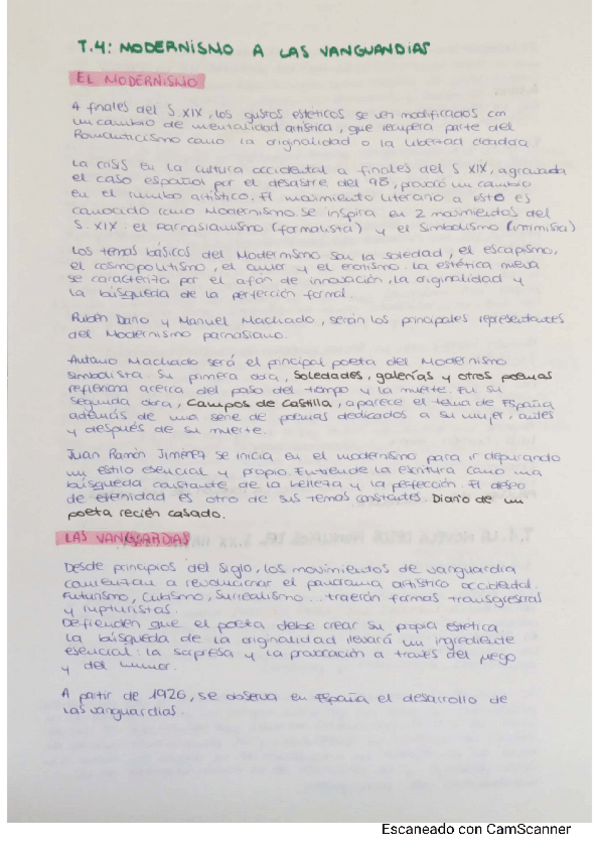 T.4: MODERNISMO A LAS VANGUARDIAS
EL MODERNISMO
A finales del S. XIX, los gustos estéticos se ven modificados con
un cambio de mentalidad artística, que recupera parte del
Romanticismo como la originalidad o la libertad creadora.
La crisis en la cultura occidental a finales del S XIX, agravada
el caso español por el desastre del 98, provocó un cambio
en el rumbo artístico. El movimiento literario a esto es
conocido como Modernismo. Se inspira en 2 movimientos del
S. XIX: el Parnasianismo (formalista) y el Simbolismo (intimista)
Los temas básicos del Modernismo son la soledad, el escapismo,
el cosmopolitismo, el amor y el erotismo. La estética nueva
se caracteriza por el afán de innovación, la originalidad y
la búsqueda de la perfección formal.
Rubén Darío y Manuel Machado, serán los principales representantes
del Modernismo parnasiano.
Antonio Machado será el principal poeta del Modernismo
simbolista. Su primera obra, Soledades, galerías y otros poemas
reflexiona acerca del paso del tiempo y la muerte. En su
segunda obra, Campos de Castilla, aparece el tema de España
además de una serie de poemas dedicados a su mujer, antes
y después de su muerte.
Juan Ramón Jiménez se inicia en el modernismo para ir depurando
un estilo esencial y propio. Entiende la escritura como una
búsqueda constante de la belleza y la perfección. El deseo
de eternidad es otro de sus temas constantes. Diario de un
poeta recién casado.
LAS VANGUARDIAS
Desde principios del siglo, los movimientos de vanguardia
comienzan a revolucionar el panorama artístico occidental.
Futurismo, Cubismo, Surrealismo... traerán formas transgresoras
y rupturistas.
Defienden que el poeta debe crear su propia estética
La búsqueda de la originalidad llevará un ingrediente
esencial: la sorpresa y la provocación a través del juego
y del humor.
A partir de 1926, se observa en España el desarrollo de
las vanguardias.
Escaneado con CamScanner